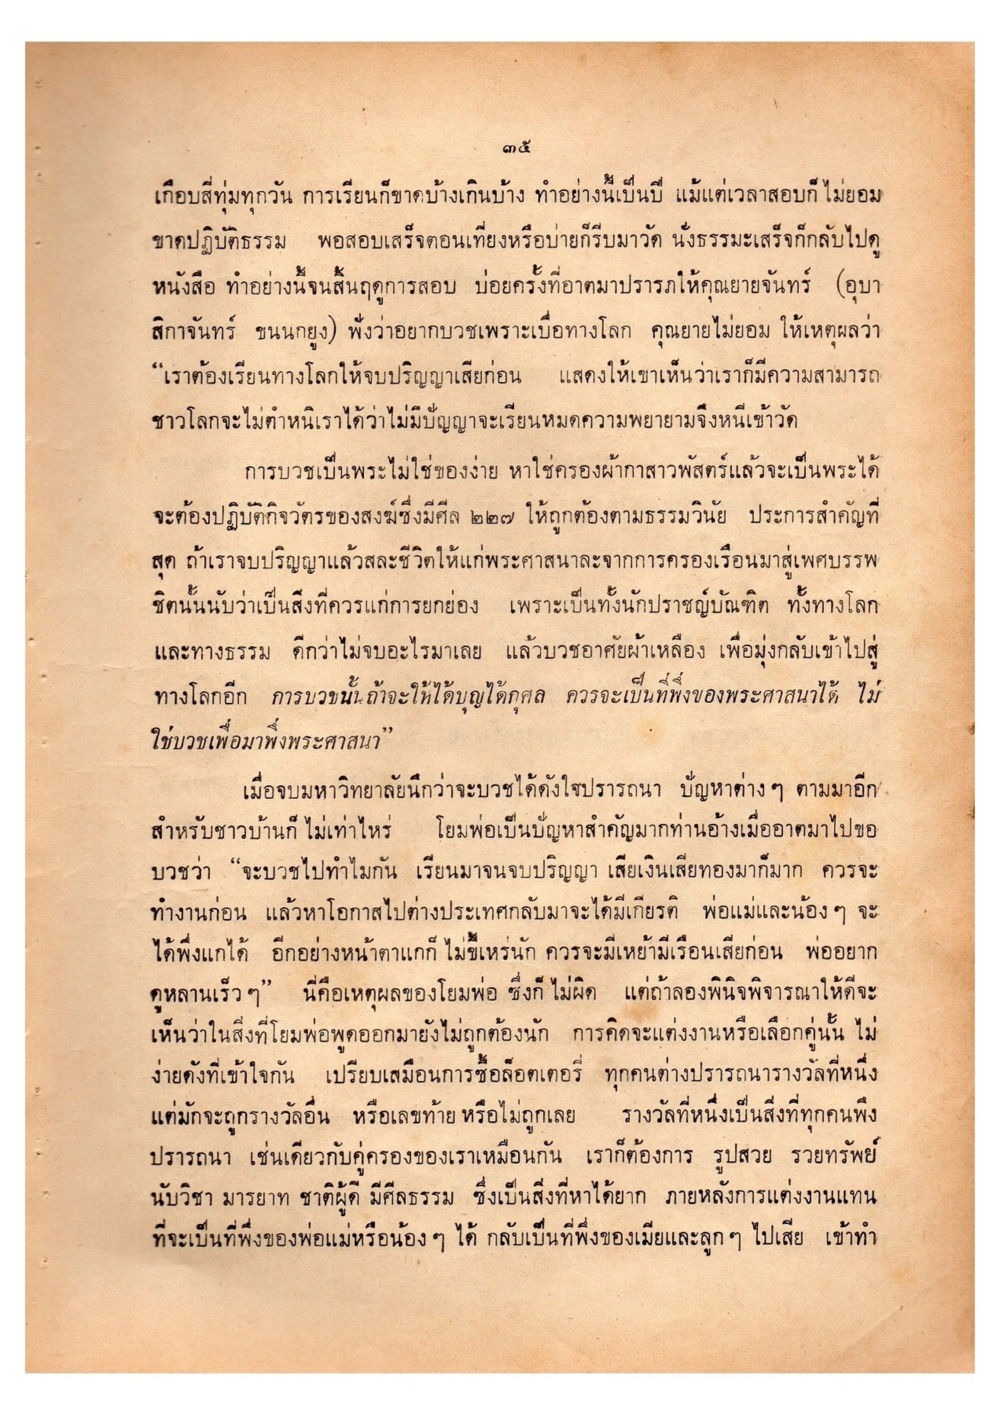 ๓๕
เกือบสี่ทุ่มทุกวัน การเรียนก็ขาดบ้างเกินบ้าง ทำอย่างนี้เป็นปี แม้แต่เวลาสอบก็ไม่ยอม
ขาดปฏิบัติธรรม พอสอบเสร็จตอนเที่ยงหรือบ่ายก็รีบมาวัด นั่งธรรมะเสร็จก็กลับไปดู
หนังสือ ทำอย่างนี้จนสิ้นฤดูการสอบ บ่อยครั้งที่อาตมาปรารภให้คุณยายจันทร์ (อุบา
สิกาจันทร์ ขนนกยูง) ฟังว่าอยากบวชเพราะเบื่อทางโลก คุณยายไม่ยอม ให้เหตุผลว่า
“เราต้องเรียนทางโลกให้จบปริญญาเสียก่อน แสดงให้เขาเห็นว่าเราก็มีความสามารถ
ชาวโลกจะไม่ตำหนิเราได้ว่าไม่มีปัญญาจะเรียนหมดความพยายามจึงหนีเข้าวัด
การบวชเป็นพระไม่ใช่ของง่าย หาใช่ครองผ้ากาสาวพัสตร์แล้วจะเป็นพระได้
จะต้องปฏิบัติกิจวัตรของสงฆ์ซึ่งมีศีล ๒๒๗ ให้ถูกต้องตามธรรมวินัย ประการสำคัญที่
สุด ถ้าเราจบปริญญาแล้วสละชีวิตให้แก่พระศาสนาละจากการครองเรือนมาสู่เพศบรรพ
ชิตนั้นนับว่าเป็นสิ่งที่ควรแก่การยกย่อง เพราะเป็นทั้งนักปราชญ์บัณฑิต ทั้งทางโลก
และทางธรรม ดีกว่าไม่จบอะไรมาเลย แล้วบวชอาศัยผ้าเหลือง เพื่อมุ่งกลับเข้าไปสู่
ทางโลกอีก การบวชนั้นถ้าจะให้ได้บุญได้กุศล ควรจะเป็นที่พึ่งของพระศาสนาได้ ไม่
ใช่บวชเพื่อมาพึ่งพระศาสนา”
เมื่อจบมหาวิทยาลัยนึกว่าจะบวชได้ดังใจปรารถนา ปัญหาต่าง ๆ ตามมาอีก
สำหรับชาวบ้านก็ไม่เท่าไหร่ โยมพ่อเป็นปัญหาสำคัญมากท่านอ้างเมื่ออาตมาไปขอ
บวชว่า “จะบวชไปทำไมกัน เรียนมาจนจบปริญญา เสียเงินเสียทองมาก็มาก ควรจะ
ทำงานก่อน แล้วหาโอกาสไปต่างประเทศกลับมาจะได้มีเกียรติ พ่อแม่และน้อง ๆ จะ
ได้พึ่งแกได้ อีกอย่างหน้าตาแกก็ไม่ขี้เหร่นัก ควรจะมีเหย้ามีเรือนเสียก่อน พ่ออยาก
ดูหลานเร็ว ๆ” นี่คือเหตุผลของโยมพ่อ ซึ่งก็ไม่ผิด แต่ถ้าลองพินิจพิจารณาให้ดีจะ
เห็นว่าในสิ่งที่โยมพ่อพูดออกมายังไม่ถูกต้องนัก การคิดจะแต่งงานหรือเลือกคู่นั้น ไม่
ง่ายดังที่เข้าใจกัน เปรียบเสมือนการซื้อล็อตเตอรี่ ทุกคนต่างปรารถนารางวัลที่หนึ่ง
แต่มักจะถูกรางวัลอื่น หรือเลขท้าย หรือไม่ถูกเลย รางวัลที่หนึ่งเป็นสิ่งที่ทุกคนพึง
ปรารถนา เช่นเดียวกับคู่ครองของเราเหมือนกัน เราก็ต้องการ รูปสวย รวยทรัพย์
นับวิชา มารยาท ชาติผู้ดี มีศีลธรรม ซึ่งเป็นสิ่งที่หาได้ยาก ภายหลังการแต่งงานแทน
ที่จะเป็นที่พึ่งของพ่อแม่หรือน้อง ๆ ได้ กลับเป็นที่พึ่งของเมียและลูก ๆ ไปเสีย เข้าทำ